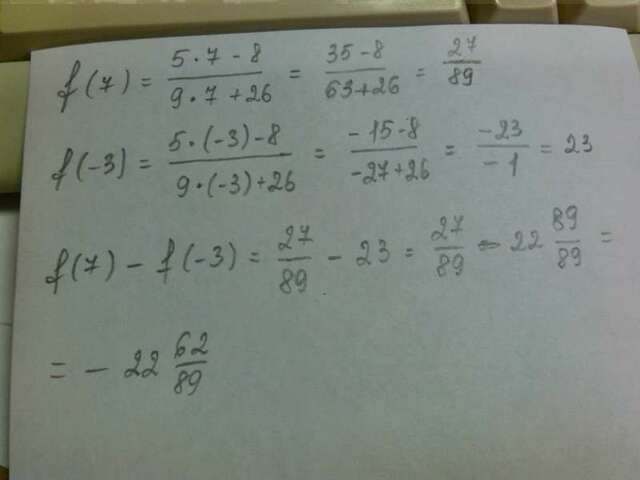 f(7) = (5·7-8)/(9·7+26) = (35-8)/(63+26) = 27/89
f(-3) = (5·(-3)-8)/(9·(-3)+26) = (-15-8)/(-27+26) = -23/-1 = 23
f(7) - f(-3) = 27/89 - 23 = 27/89 - 22 89/89 =
= - 22 62/89